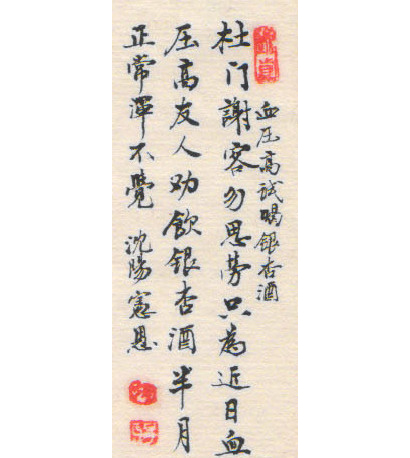 血压高试喝银杏酒
杜门謝客勿思劳只為近日血
压高友人劝飲银杏酒半月
正常渾不覺 沈陽憲恩